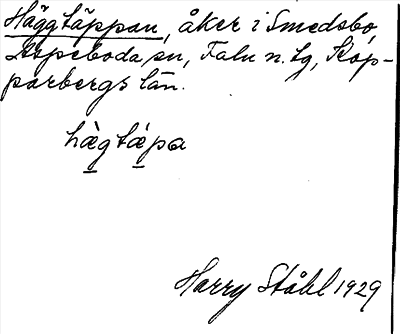 Häggtäppan, åker i Smedsbo,
Aspeboda sn, Falu n. tg, Kop-
parbergs län.
hæ̀gtǽpa
Harry Ståhl 1929